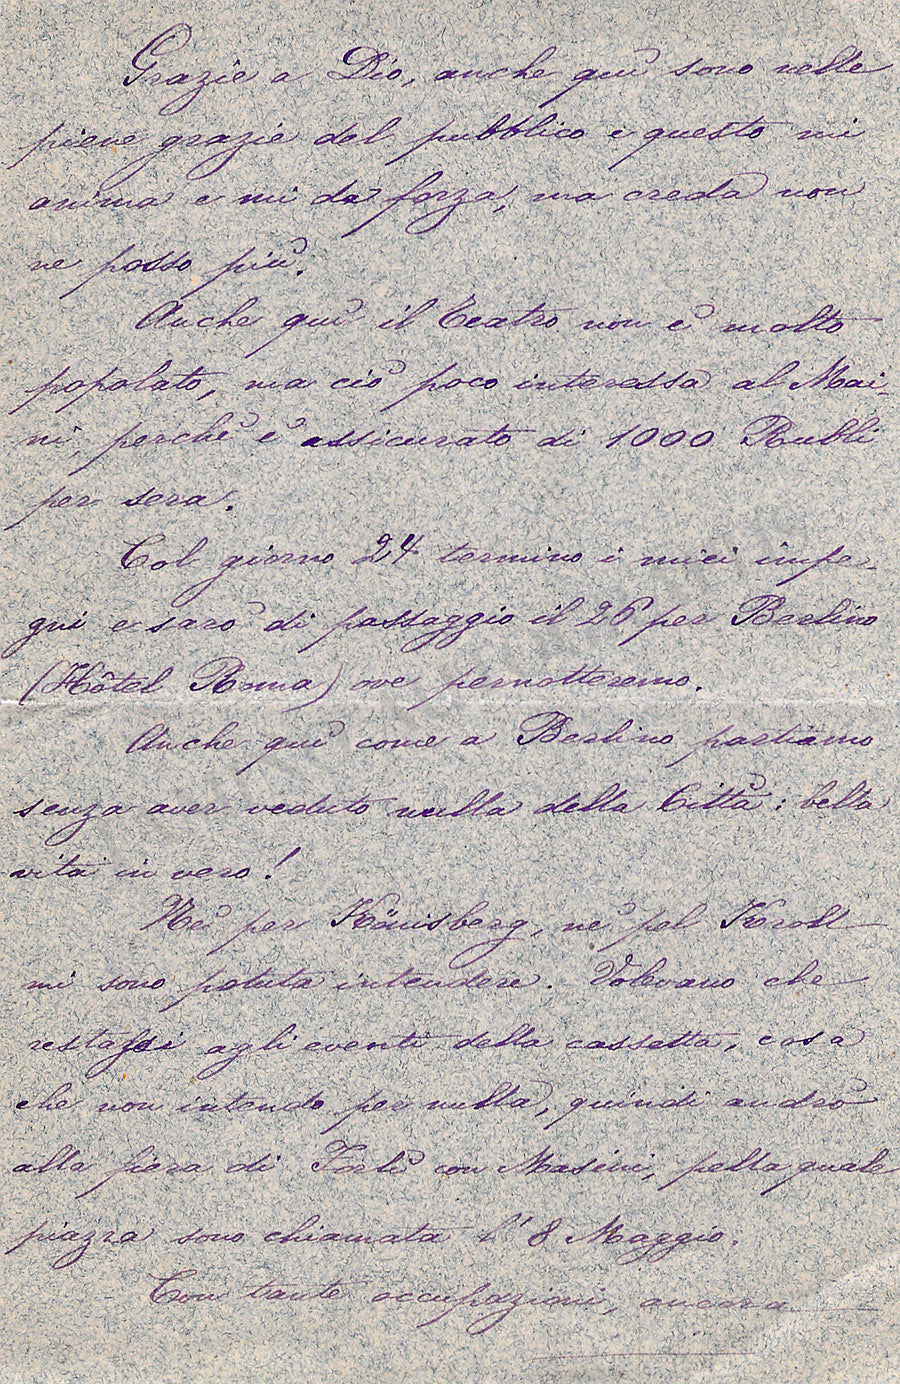 Grazie a Dio, anche quì sono nelle
piene grazie del pubblico e questo mi
anima e mi da forza, ma creda non
ne posso più.
Anche quì il Teatro non è molto
popolato, ma ciò poco interessa al Mai-
ni, perchè è assicurato di 1000 Rubli
per sera.
Col giorno 24 termino i miei impe-
gni e sarò di passaggio il 26 per Berlino
(Hôtel Roma) ove pernotteremo.
Anche quì come a Berlino partiamo
senza aver veduto nulla della Città: bella
vita in vero!
Nè per Könisberg, nè pel Kroll
mi sono potuta intendere. Volevano che
restassi agli eventi della cassetta, cosa
che non intendo per nulla, quindi andrò
alla fiera di Forlì con Masini, pella quale
piazza sono chiamata l'8 Maggio.
Con tante occupazioni, ancora